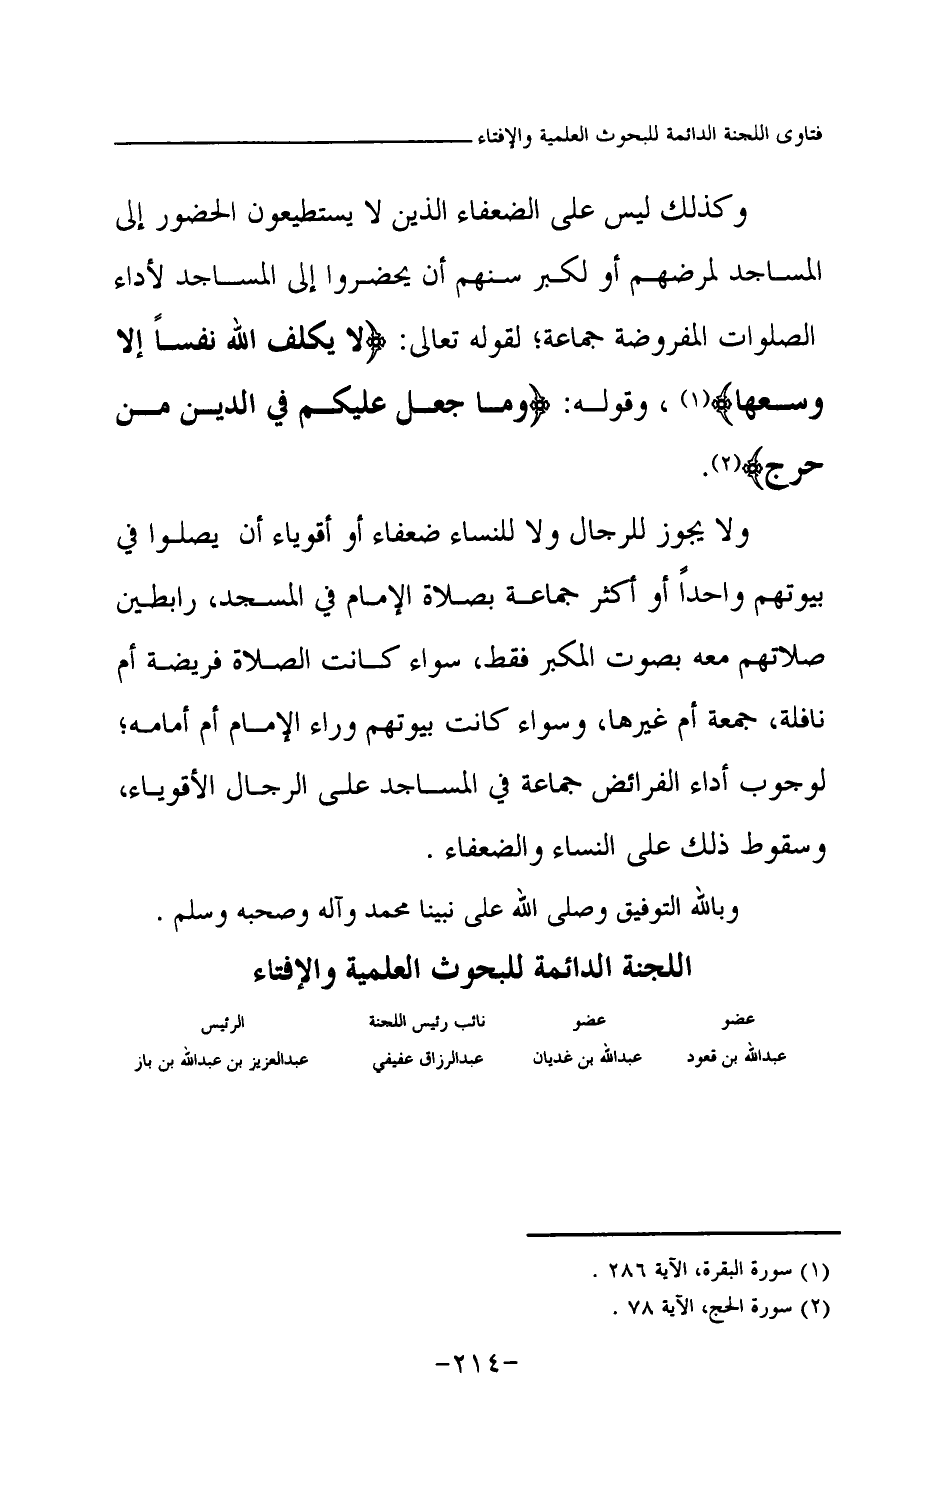 فتاوى اللجنة الدائمة للبحوث العلمية والإفتاء
وكذلك ليس على الضعفاء الذين لا يستطيعون الحضور إلى
المساجد لمرضهم أو لكبر سنهم أن يحضروا إلى المساجد لأداء
الصلوات المفروضة جماعة؛ لقوله تعالى: ﴿لا يكلف الله نفساً إلا
وسعها﴾(١) ، وقوله: ﴿وما جعل عليكم في الدين من
حرج﴾(٢).
ولا يجوز للرجال ولا للنساء ضعفاء أو أقوياء أن يصلوا في
بيوتهم واحداً أو أكثر جماعة بصلاة الإمام في المسجد، رابطين
صلاتهم معه بصوت المكبر فقط، سواء كانت الصلاة فريضة أم
نافلة، جمعة أم غيرها، وسواء كانت بيوتهم وراء الإمام أم أمامه؛
لوجوب أداء الفرائض جماعة في المساجد على الرجال الأقوياء،
وسقوط ذلك على النساء والضعفاء .
وبالله التوفيق وصلى الله على نبينا محمد وآله وصحبه وسلم .
اللجنة الدائمة للبحوث العلمية والإفتاء
عضو عضو نائب رئيس اللجنة الرئيس
عبدالله بن قعود عبدالله بن غديان عبدالرزاق عفيفي عبدالعزيز بن عبدالله بن باز
(١) سورة البقرة، الآية ٢٨٦ .
(٢) سورة الحج، الآية ٧٨ .
-٢١٤-